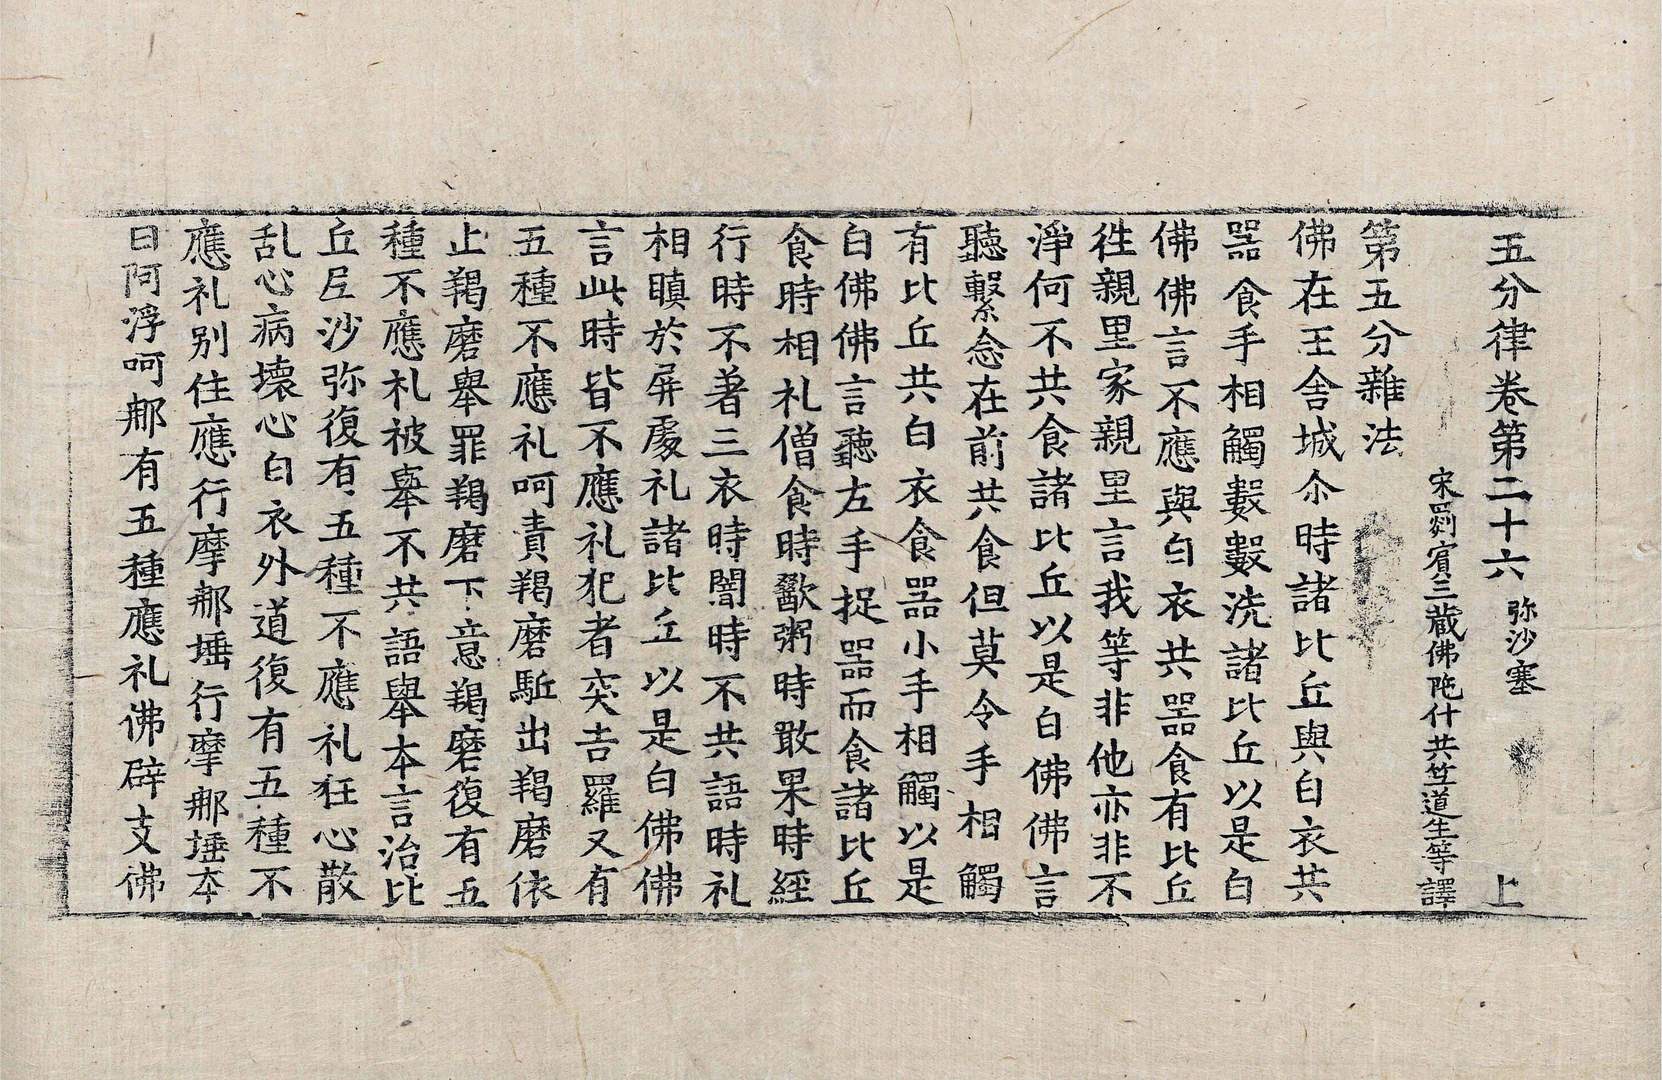 五分律卷第二十六 弥沙塞 上
宋罽賓三藏佛陁什共竺道生等譯
第五分雜法
佛在王舍城尒時諸比丘與白衣共
器食手相觸數數洗諸比丘以是白
佛佛言不應與白衣共器食有比丘
徃親里家親里言我等非他亦非不
淨何不共食諸比丘以是白佛佛言
聽繫念在前共食但莫令手相觸
有比丘共白衣食器小手相觸以是
白佛佛言聽左手捉器而食諸比丘
食時相礼僧食時歠粥時噉果時經
行時不著三衣時闇時不共語時礼
相瞋於屏處礼諸比丘以是白佛佛
言此時皆不應礼犯者突吉羅又有
五種不應礼呵責羯磨駈出羯磨依
止羯磨舉罪羯磨下意羯磨復有五
種不應礼被舉不共語舉本言治比
丘尼沙弥復有五種不應礼狂心散
乱心病壞心白衣外道復有五種不
應礼别住應行摩那埵行摩那埵本
日阿浮呵那有五種應礼佛辟支佛